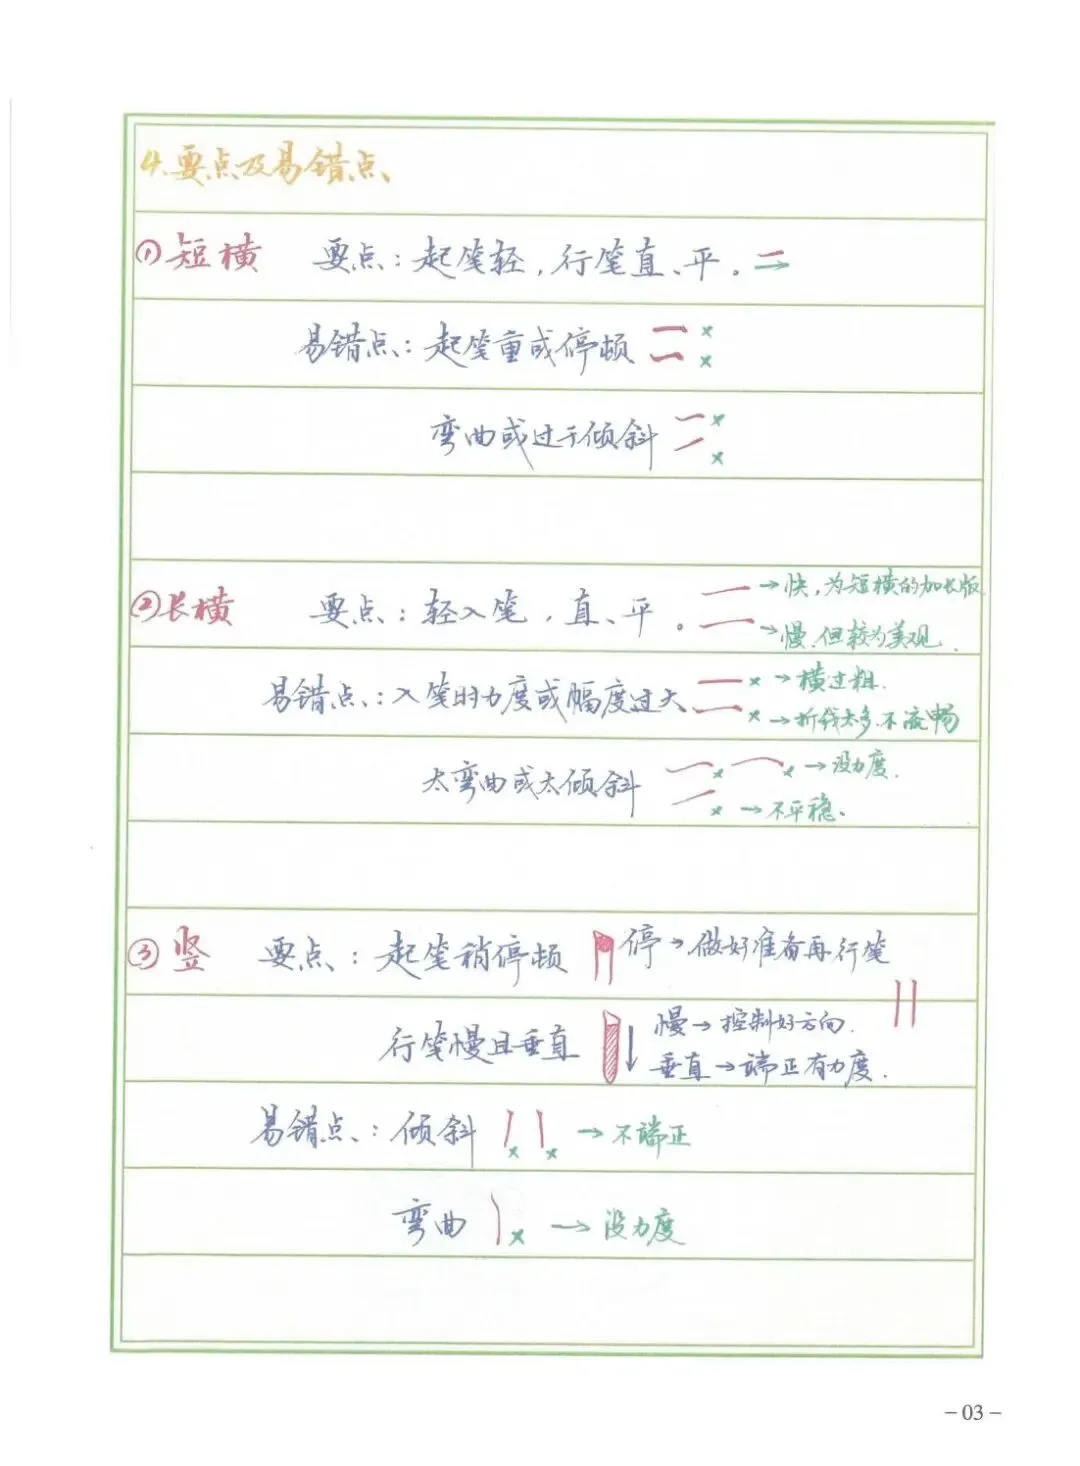 4.要点及易错点、
①短横 要点：起笔轻，行笔直、平。
易错点：起笔重或停顿
弯曲或过于倾斜
②长横 要点：轻入笔，直、平。
→快，为短横的加长版.
→慢.但较为美观.
易错点：入笔时力度或幅度过大
→横过粗.
→折线太多.不流畅
太弯曲或太倾斜
→没力度.
→不平稳.
③竖 要点：起笔稍停顿 停→做好准备再行笔
行笔慢且垂直 慢→控制好方向.
垂直→端正有力度.
易错点：倾斜 →不端正
弯曲 →没力度
-03-